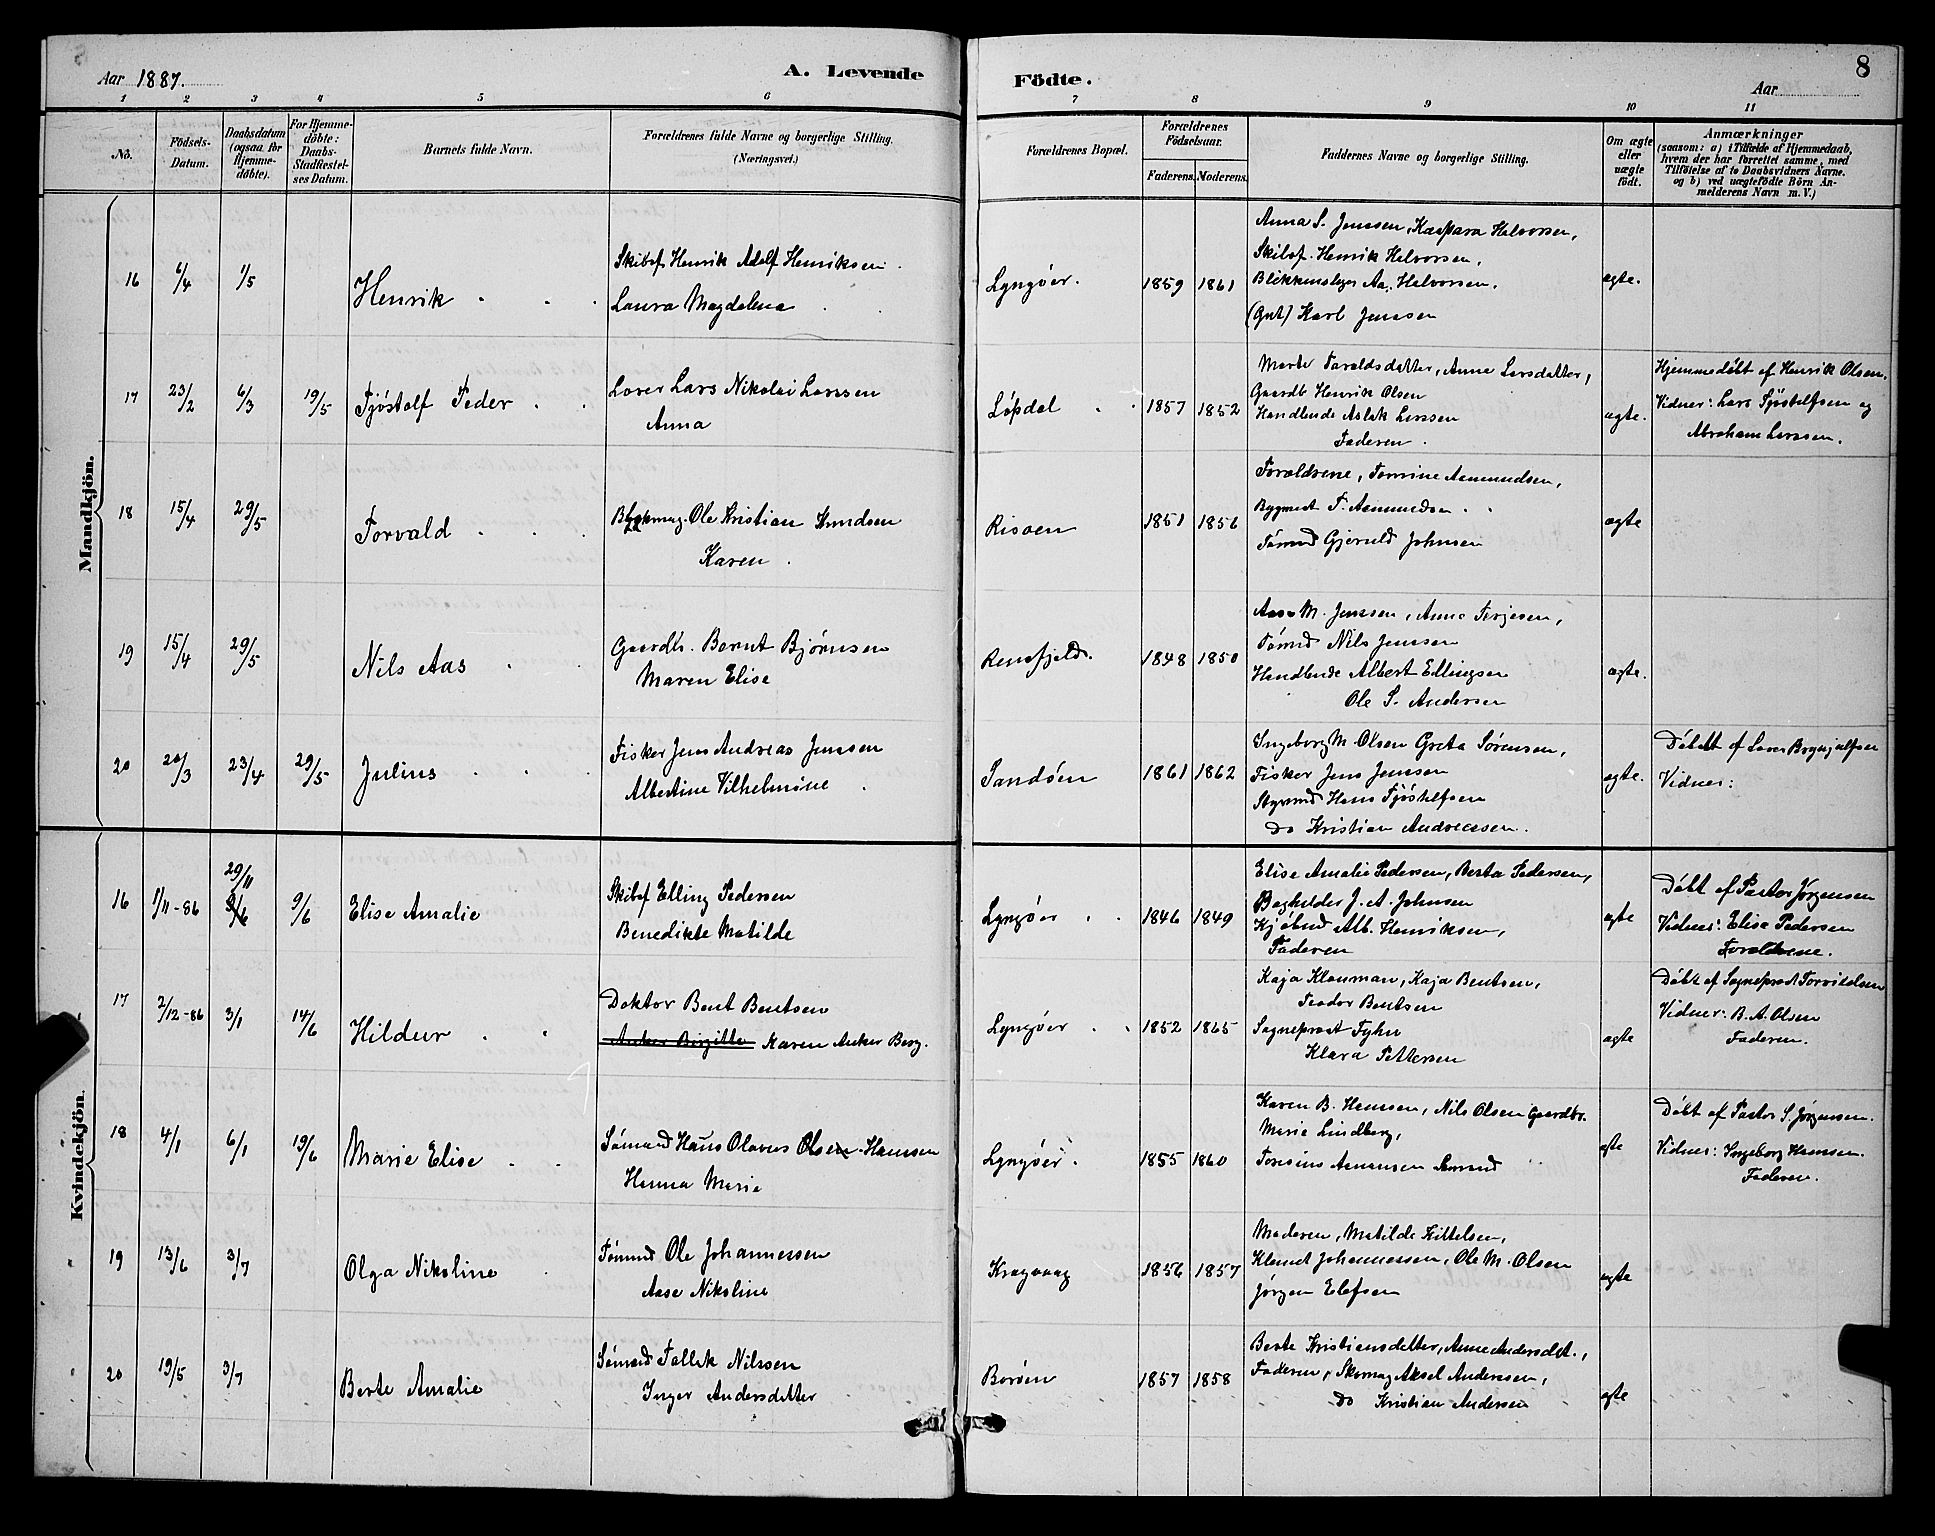 Aar 1887.
A. Levende
Födte.
8
Aar
1 2 3 4 5 6 7 8 9 10 11
No.
Födsels-
Datum.
Daabsdatum
(ogsaa for
Hjemme-
döbte).
For Hjemme-
döbte:
Daabs-
Stadfæstel-
ses Datum.
Barnets fulde Navn.
Forældrenes fulde Navne og borgerlige Stilling.
(Næringsvei.)
Forældrenes Bopæl.
Forældrenes
Födselsaar.
Faderens. Moderens.
Faddernes Navne og borgerlige Stilling.
Om ægte
eller
uægte
födt.
Anmærkninger
(saasom: a) i Tilfælde af Hjemmedaab,
hvem der har forrettet samme, med
Tilföielse af to Daabsvidners Navne.
og b) ved uægtefödte Börn An-
melderens Navn m. V.)
Mandkjön.
16 6/4 1/5
Henrik
Skibsf. Henrik Adolf Henriksen
Laura Magdalena
Lyngöer.
1859 1861
Anna S. Jenssen, Kaspara Halvorsen,
Skibsf. Henrik Halvorsen,
Blikkenslager Aa. Halvorsen.
(Gut) Karl Jenssen
ægte.
17 23/2 6/3 19/5
Tjöstolf Peder
Larer Lars Nikolai Larssen
Anna
Löpdal
1857 1852
Marte Taraldsdatter, Anne Larsdatter,
Gaardb Henrik Olsen
Handlende Aslak Larssen
Faderen.
ægte.
Hjemmedöbt af Henrik Olsen.
Vidner: Lars Tjöstolfsen og
Abraham Larssen.
18 15/4 29/5
Torvald
Ole Kristian Knudsen
Karen
Risöen
1851 1856
Foraldrene, Tomine Aanundsen,
Bygmest T. Aanundsen
Tömmd Gjeruld Johnsen
ægte
19 15/4 29/5
Nils Aas
Gaardb. Bernt Bjørnsen
Maren Elise
1848 1850
M. Jenssen, Anne Terjesen,
Tömmd Nils Jenssen
Handlende Albert Ellingsen
Ole S. Andersen
ægte.
20 20/3 23/4 29/5
Julius
Fisker Jens Andreas Jenssen
Albertine Vilhelmine
Sandöen
1861 1862
Ingeborg M. Olsen Greta Sørensen,
Fisker Jens Jenssen
Styrmd Hans Tjöstolfsen
do Kristian Andreassen.
ægte.
Döbt af Larer Brynjulfsen
Vidner:
Kvindekjön.
16 1/11-86 29/11 9/6 9/6
Elise Amalie
Skibsf Elling Pedersen
Benedikte Matilde
Lyngöer
1846 1849
Elise Amalie Pedersen, Berta Pedersen,
Bogholder J. A. Johnsen
Kjöbmd Alb. Henriksen,
Faderen
ægte
Döbt af Pastor Jørgensen
Vidner: Elise Pedersen
Foraldrene.
17 2/12-86 3/1 14/6
Hildur
Doktor Bent Bentsen
Anker Birgitte Karen Anker Berg.
Lyngöer
1852 1865
Kaja Klouman, Kaja Bentsen,
Teodor Bentsen
Sogneprest Fyhn
Klara Pettersen
ægte
Döbt af Sogneprest Torvildsen
Vidner: B. A. Olsen
Faderen.
18 4/1 6/1 19/6
Marie Elise
Sömand Hans Olaves Olsen Hanssen
Hanna Marie
Lyngöer.
1855 1860
Karen B. Hanssen, Nils Olsen Gaardbr.
Marie Lindberg,
Tomine Aanonsen Sömand
ægte
Döbt af Pastor S. Jørgensen.
Vidner: Ingeborg Hanssen.
Faderen.
19 13/6 3/7
Olga Nikoline
Tömmd Ole Johannessen
Aase Nikoline
Kragvaag
1856 1857
Moderen, Matilde Kittelsen,
Klemet Johannessen, Ole M. Olsen
Jørgen Elefsen
ægte
20 19/5 3/7
Berte Amalie
Sömand Tallak Nilssen
Inger Andersdatter
Boröen
1857 1858
Berte Kristiansdatter, Anne Andersdat.,
Faderen, Skomag Aksel Anderssen,
do Kristian Andersen
ægte